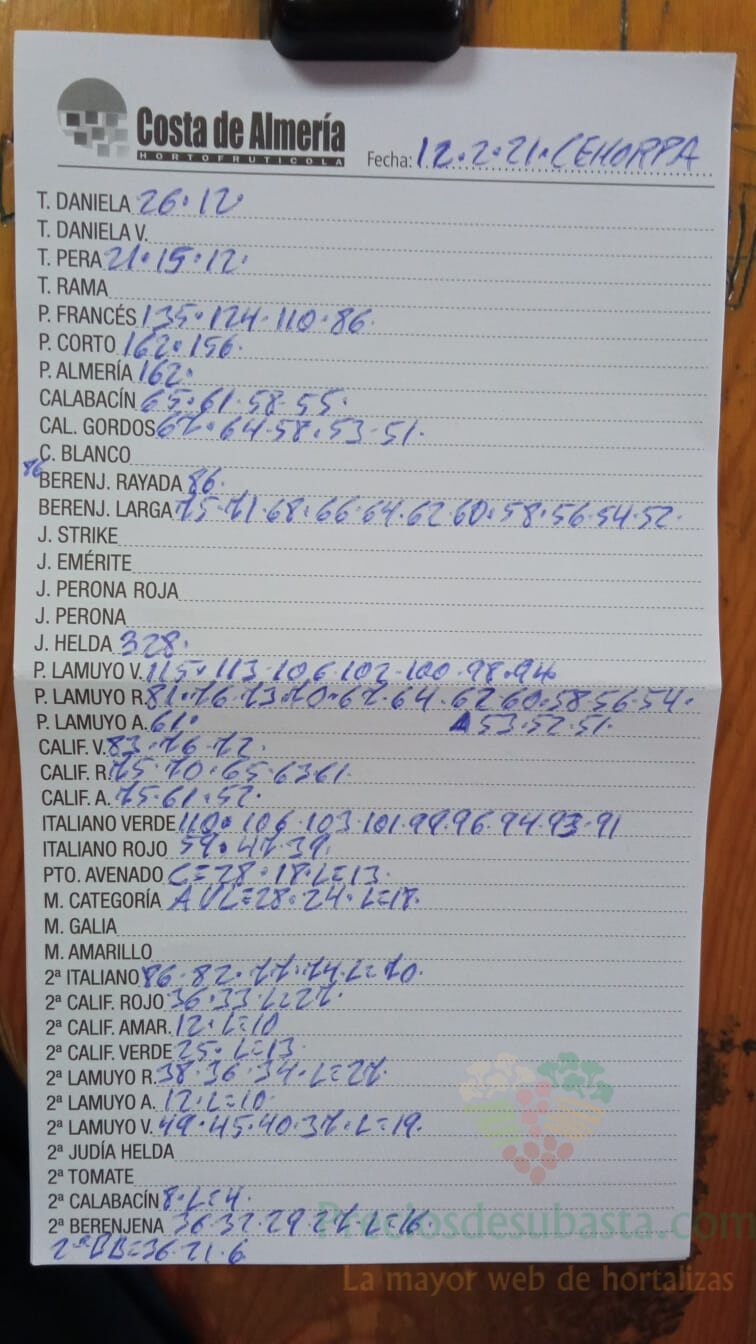 Costa de Almería
HORTOFRUTICOLA
Fecha: 12.2.21.CEHORPA
T. DANIELA 26.12.
T. DANIELA V.
T. PERA 21.15.12.
T. RAMA
P. FRANCÉS 135.124.110.86.
P. CORTO 162.156.
P. ALMERÍA 162.
CALABACÍN 65.61.58.55.
CAL. GORDOS 67.64.58.53.51.
C. BLANCO
86
BERENJ. RAYADA 86.
BERENJ. LARGA 75.71.68.66.64.62.60.58.56.54.52.
J. STRIKE
J. EMÉRITE
J. PERONA ROJA
J. PERONA
J. HELDA 328.
P. LAMUYO V. 115.113.106.102.100.98.94
P. LAMUYO R. 81.76.73.70.67.64.62.60.58.56.54.
P. LAMUYO A. 61. 53.52.51.
CALIF. V. 83.76.72.
CALIF. R. 75.70.65.63.61.
CALIF. A. 75.61.52.
ITALIANO VERDE 110.106.103.101.99.96.94.93.91
ITALIANO ROJO 59.47.39.
PTO. AVENADO C=28.18.L=13.
M. CATEGORÍA A VL=28.24.L=18.
M. GALIA
M. AMARILLO
2ª ITALIANO 86.82.77.74.L=70.
2ª CALIF. ROJO 36.33.L=27.
2ª CALIF. AMAR. 12.L=10
2ª CALIF. VERDE 25.L=13.
2ª LAMUYO R. 38.36.34.L=27.
2ª LAMUYO A. 12.L=10.
2ª LAMUYO V. 49.45.40.37.L=19.
2ª JUDÍA HELDA
2ª TOMATE
2ª CALABACÍN 8.L=4.
2ª BERENJENA 36.32.29.27.L=16.
2ªBB=36.21.6
Preciosdesubasta.com
La mayor web de hortalizas